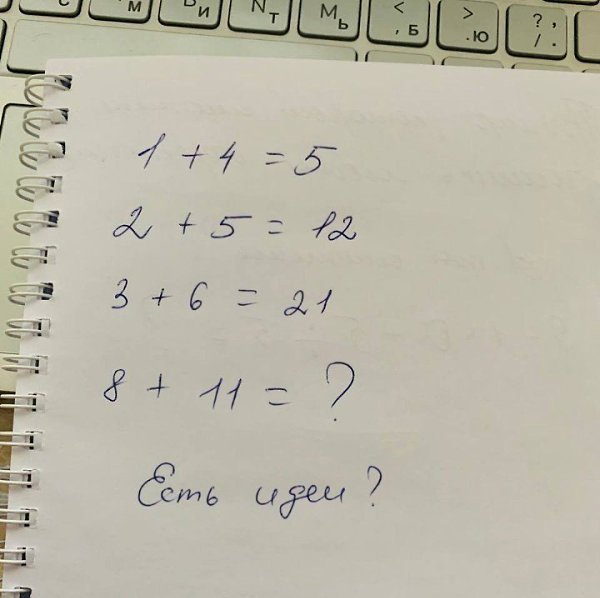 С М В И N Т М Ь < , Б > . Ю ? , / .
1 + 4 = 5
2 + 5 = 12
3 + 6 = 21
8 + 11 = ?
Есть идеи?